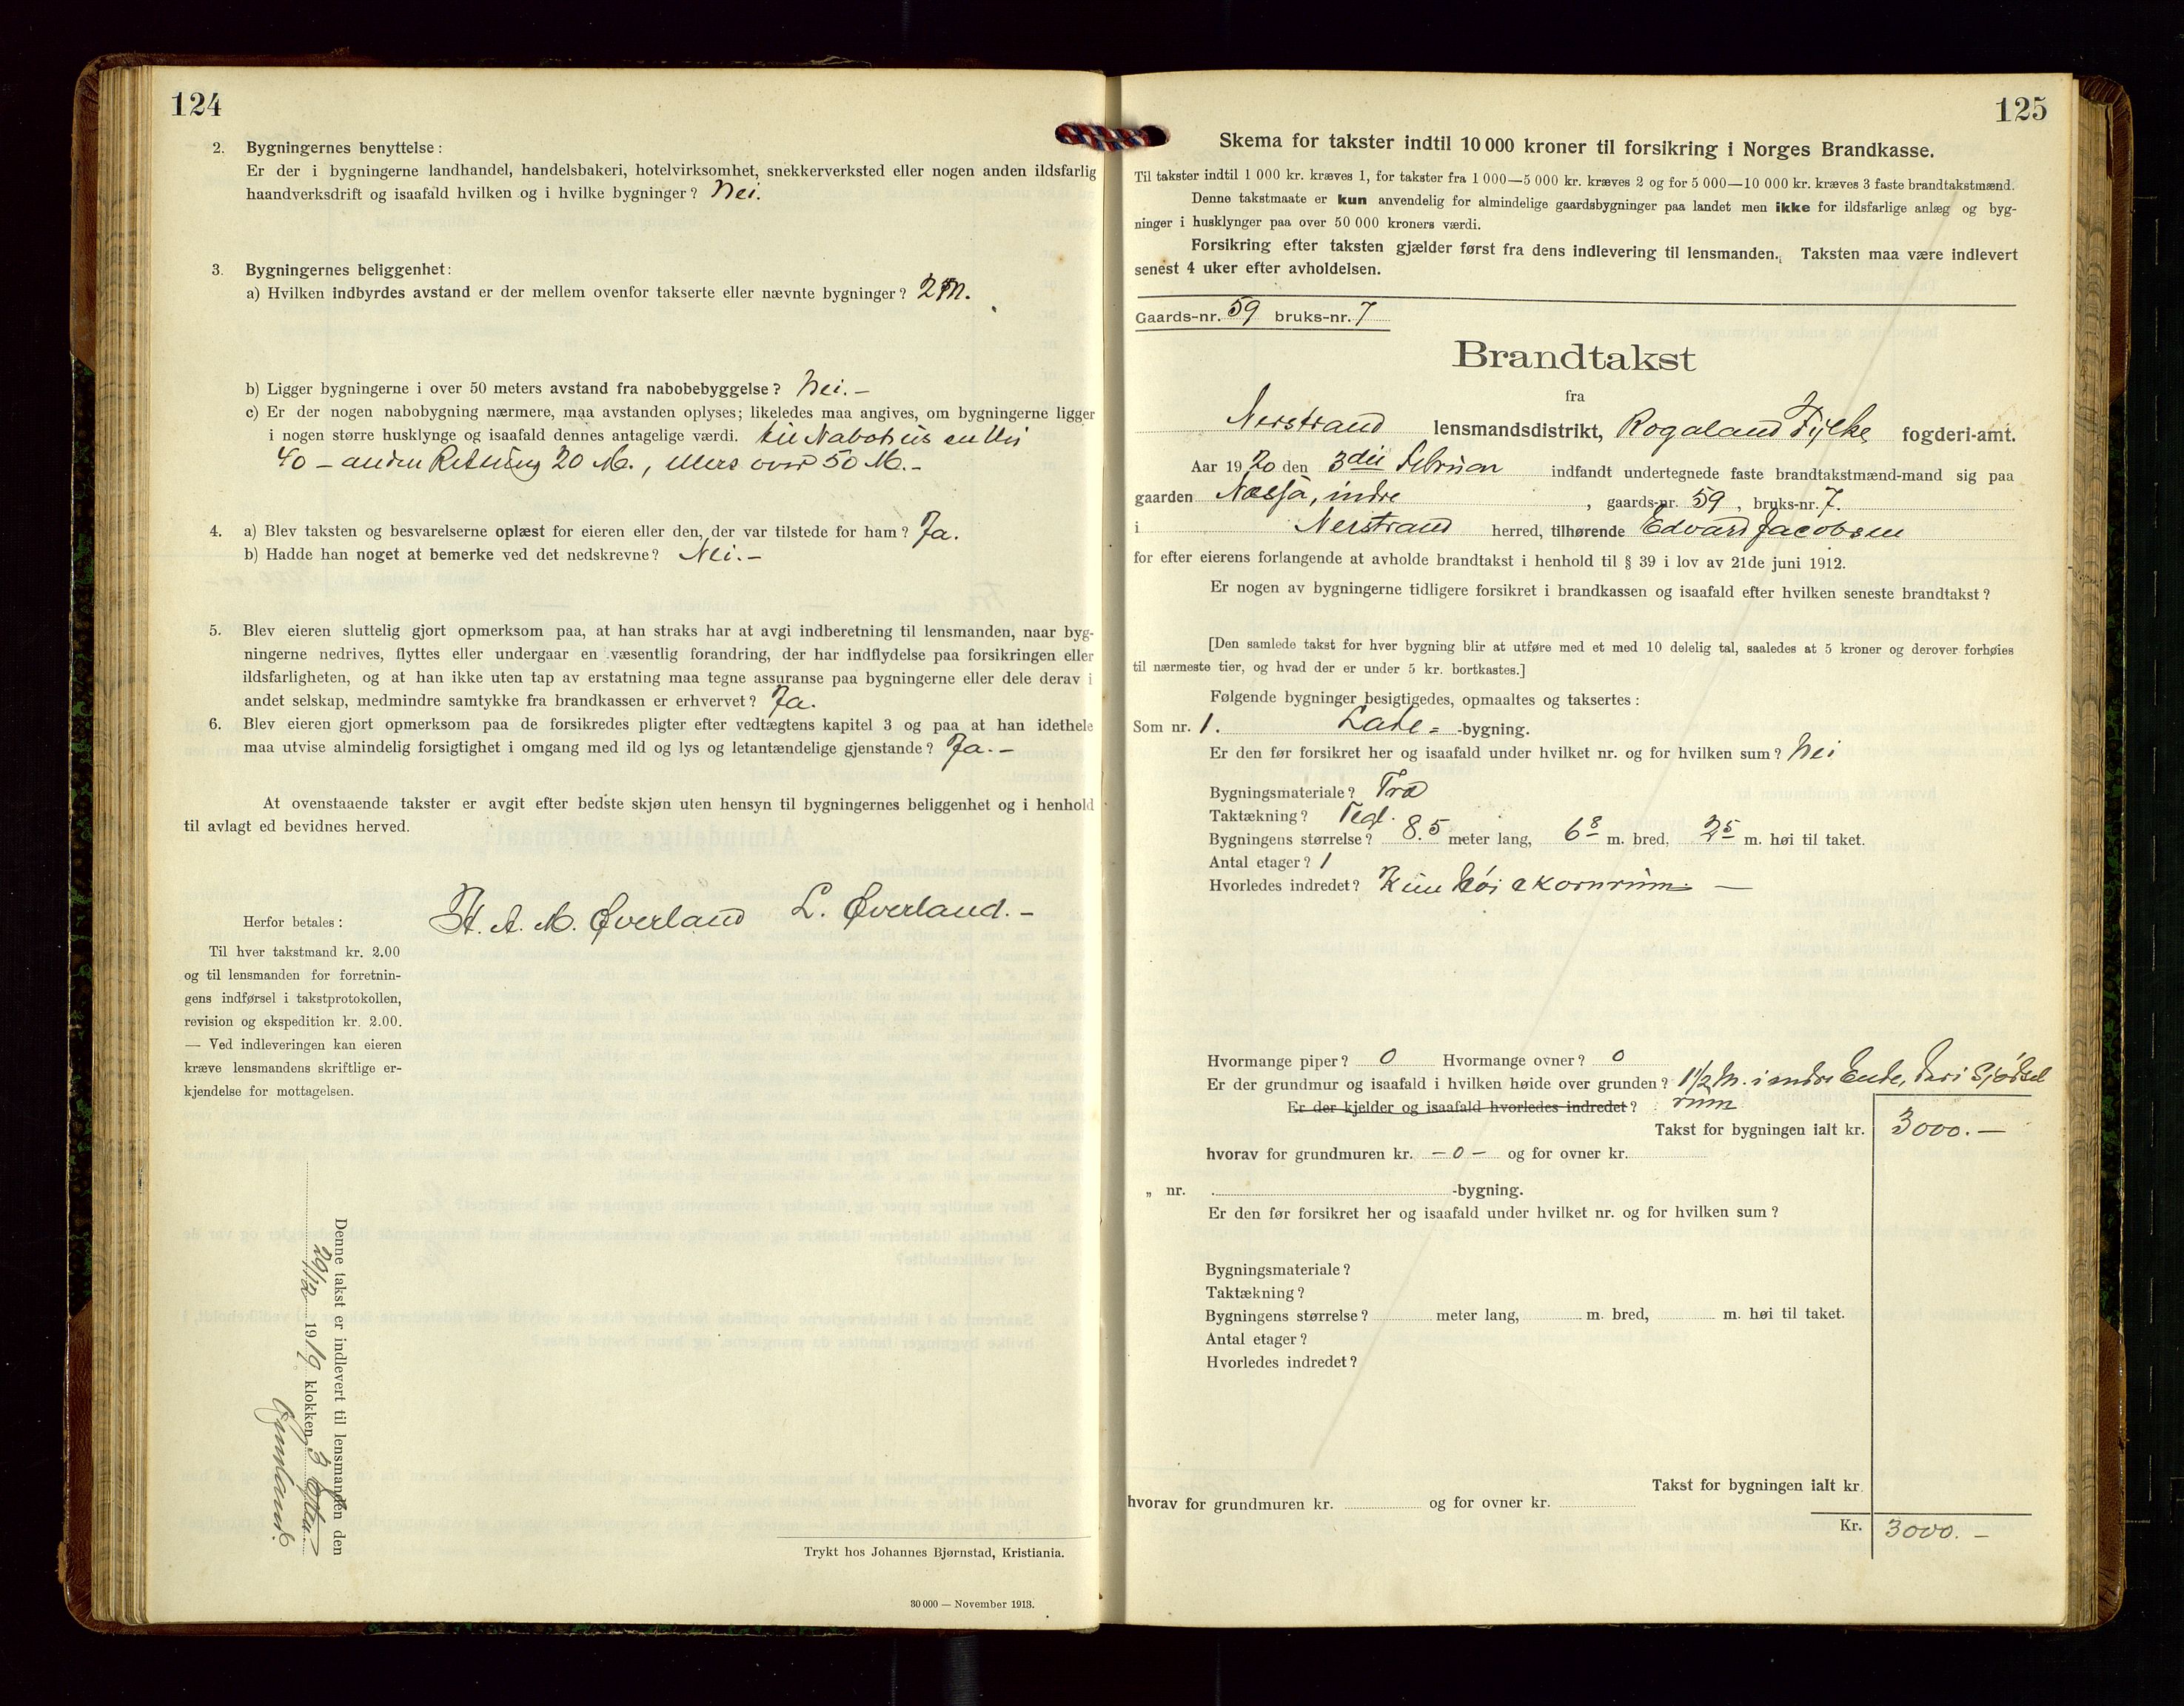 124
2. Bygningernes benyttelse:
Er der i bygningerne landhandel, handelsbakeri, hotelvirksomhet, snekkerverksted eller nogen anden ildsfarlig
haandverksdrift og isaafald hvilken og i hvilke bygninger? Nei.
3. Bygningernes beliggenhet:
a) Hvilken indbyrdes avstand er der mellem ovenfor takserte eller nævnte bygninger? 2 M.
b) Ligger bygningerne i over 50 meters avstand fra nabobebyggelse? Nei. –
c) Er der nogen nabobygning nærmere, maa avstanden oplyses; likeledes maa angives, om bygningerne ligger
i nogen større husklynge og isaafald dennes antagelige værdi. til Nabohus en Vei
40 – anden Retning 20 M., ellers over 50 M. –
4. a) Blev taksten og besvarelserne oplæst for eieren eller den, der var tilstede for ham? Ja.
b) Hadde han noget at bemerke ved det nedskrevne? Nei. –
5. Blev eieren sluttelig gjort opmerksom paa, at han straks har at avgi indberetning til lensmanden, naar byg-
ningerne nedrives, flyttes eller undergaar en væsentlig forandring, der har indflydelse paa forsikringen eller
ildsfarligheten, og at han ikke uten tap av erstatning maa tegne assuranse paa bygningerne eller dele derav i
andet selskap, medmindre samtykke fra brandkassen er erhvervet? Ja.
6. Blev eieren gjort opmerksom paa de forsikredes pligter efter vedtægtens kapitel 3 og paa at han idethele
maa utvise almindelig forsigtighet i omgang med ild og lys og letantændelige gjenstande? Ja. –
At ovenstaaende takster er avgit efter bedste skjøn uten hensyn til bygningernes beliggenhet og i henhold
til avlagt ed bevidnes herved.
H. A. M. Øverland L. Øverland. –
Herfor betales:
Til hver takstmand kr. 2.00
og til lensmanden for forretnin-
gens indførsel i takstprotokollen,
revision og ekspedition kr. 2.00.
— Ved indleveringen kan eieren
kræve lensmandens skriftlige er-
kjendelse for mottagelsen.
Denne takst er indlevert til lensmanden den
29/12 1919 klokken 3 Etm.
Trykt hos Johannes Bjørnstad, Kristiania.
30 000 — November 1913.
125
Skema for takster indtil 10 000 kroner til forsikring i Norges Brandkasse.
Til takster indtil 1 000 kr. kræves 1, for takster fra 1 000—5 000 kr. kræves 2 og for 5 000—10 000 kr. kræves 3 faste brandtakstmænd.
Denne takstmaate er kun anvendelig for almindelige gaardsbygninger paa landet men ikke for ildsfarlige anlæg og byg-
ninger i husklynger paa over 50 000 kroners værdi.
Forsikring efter taksten gjælder først fra dens indlevering til lensmanden. Taksten maa være indlevert
senest 4 uker efter avholdelsen.
Gaards-nr. 59 bruks-nr. 7
Brandtakst
fra
Nerstrand lensmandsdistrikt, Rogaland Fylke fogderi-amt.
Aar 1920 den 3die Februar indfandt undertegnede faste brandtakstmænd-mand sig paa
gaarden Næssa, indre, gaards-nr. 59, bruks-nr. 7.
i Nerstrand herred, tilhørende Edvard Jacobsen
for efter eierens forlangende at avholde brandtakst i henhold til § 39 i lov av 21de juni 1912.
Er nogen av bygningerne tidligere forsikret i brandkassen og isaafald efter hvilken seneste brandtakst?
[Den samlede takst for hver bygning blir at utføre med et med 10 delelig tal, saaledes at 5 kroner og derover forhøies
til nærmeste tier, og hvad der er under 5 kr. bortkastes.]
Følgende bygninger besigtigedes, opmaaltes og taksertes:
Som nr. 1. Lade= -bygning.
Er den før forsikret her og isaafald under hvilket nr. og for hvilken sum? Nei
Bygningsmateriale? Træ
Taktækning? Tegl.
Bygningens størrelse? 8.5 meter lang, 6 8 m. bred, 2 5 m. høi til taket.
Antal etager? 1
Hvorledes indredet? Kun høi & kornrum —
Hvormange piper? 0 Hvormange ovner? 0
Er der grundmur og isaafald i hvilken høide over grunden? 1 1/2 M. i indre Ende, deri Gjødsel
Er der kjelder og isaafald hvorledes indredet? rum
Takst for bygningen ialt kr. 3000. —
hvorav for grundmuren kr. – 0 – og for ovner kr.
„ nr. -bygning.
Er den før forsikret her og isaafald under hvilket nr. og for hvilken sum?
Bygningsmateriale?
Taktækning?
Bygningens størrelse? meter lang, m. bred, m. høi til taket.
Antal etager?
Hvorledes indredet?
Takst for bygningen ialt kr.
hvorav for grundmuren kr. og for ovner kr.
Kr. 3000. –